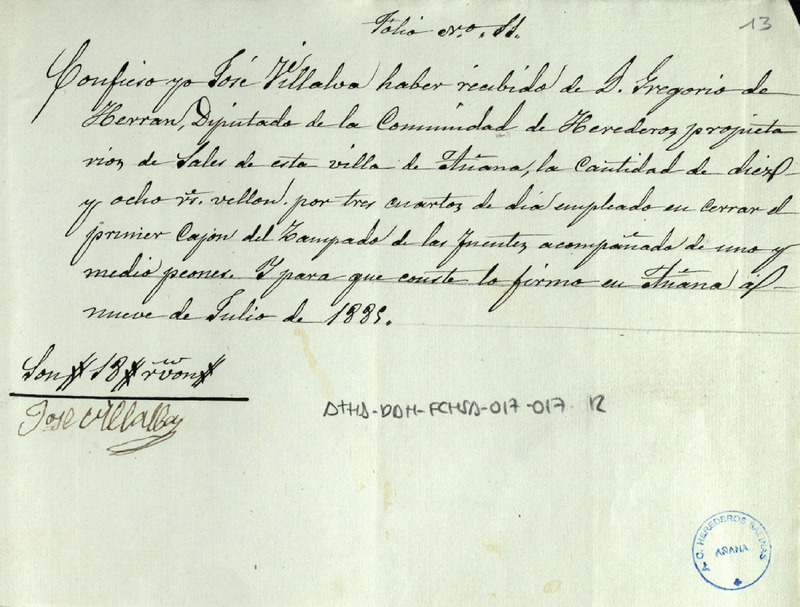 Folio N.º 11.
13
Confieso yo José Villalva haber recibido de D. Gregorio de
Herran, Diputado de la Comunidad de Herederos propieta
rios de Sales de esta villa de Añana, la cantidad de diez
y ocho rs. vellon. por tres cuartos de dia empleado en cerrar el
primer Cajon del Zampado de las fuentes acompañado de uno y
medio peones. Y para que conste lo firmo en Añana á
nueve de Julio de 1885.
Son # 18 # rs von #
José Villalba
ATHA-DAH-FCHSA-017-017. 12
C. HEREDEROS SALINAS
AÑANA